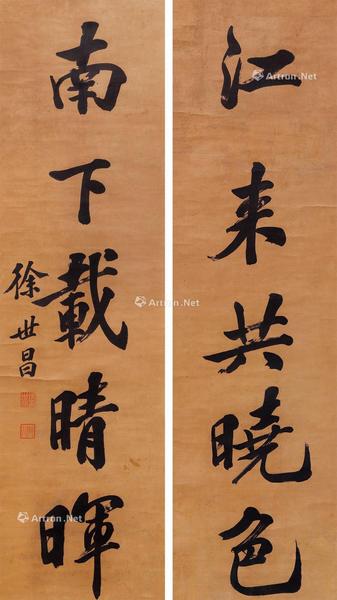 江来共曉色
南下載晴暉
徐世昌
Artron.Net
Artron.Net
Artron.Net